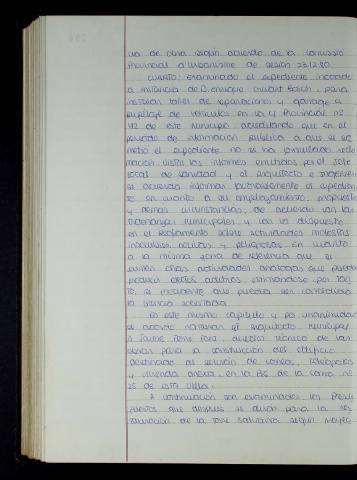 cia de obra según acuerdo de la Comisión
Provincial d'Urbanisme de sesión 23.12.80.
CUARTO: Examinado el expediente incoado
a instancia de D. Enrique Bosch, para
instalar taller de reparaciones y garage a
pupilaje de vehículos en la C/ Provincial nº
42 de este municipio resultando que en el
periodo de información pública a que se so-
metió el expediente no se ha formulado recla-
mación. Vistos los informes emitidos por el Jefe
local de Sanidad y el Arquitecto e Ingeniero
se acuerda informar favorablemente el expedien-
te en cuanto a su emplazamiento, propuesta
y demás circunstancias, de acuerdo con las
Ordenanzas Municipales y con lo dispuesto
en el Reglamento sobre actividades molestas
insalubres nocivas y peligrosas. En cuanto
a la misma zona de referencia que
existen otras actividades análogas que puedan
producir efectos aditivos, estimándose por tan-
to, es procedente que pueda ser concedida
la licencia solicitada.
En este mismo capítulo y por unanimidad
se acordó nombrar al Arquitecto Municipal
D. Jaume Pons Fons director técnico de las
obras para la construcción del edificio
destinado al servicio de Correos, Telégrafos
y vivienda anexa, en la de la carra. nº
25 de esta Villa.
A continuación son examinados los Presu-
puestos que después se dirán para la res-
tauración de la Torre Salvana según